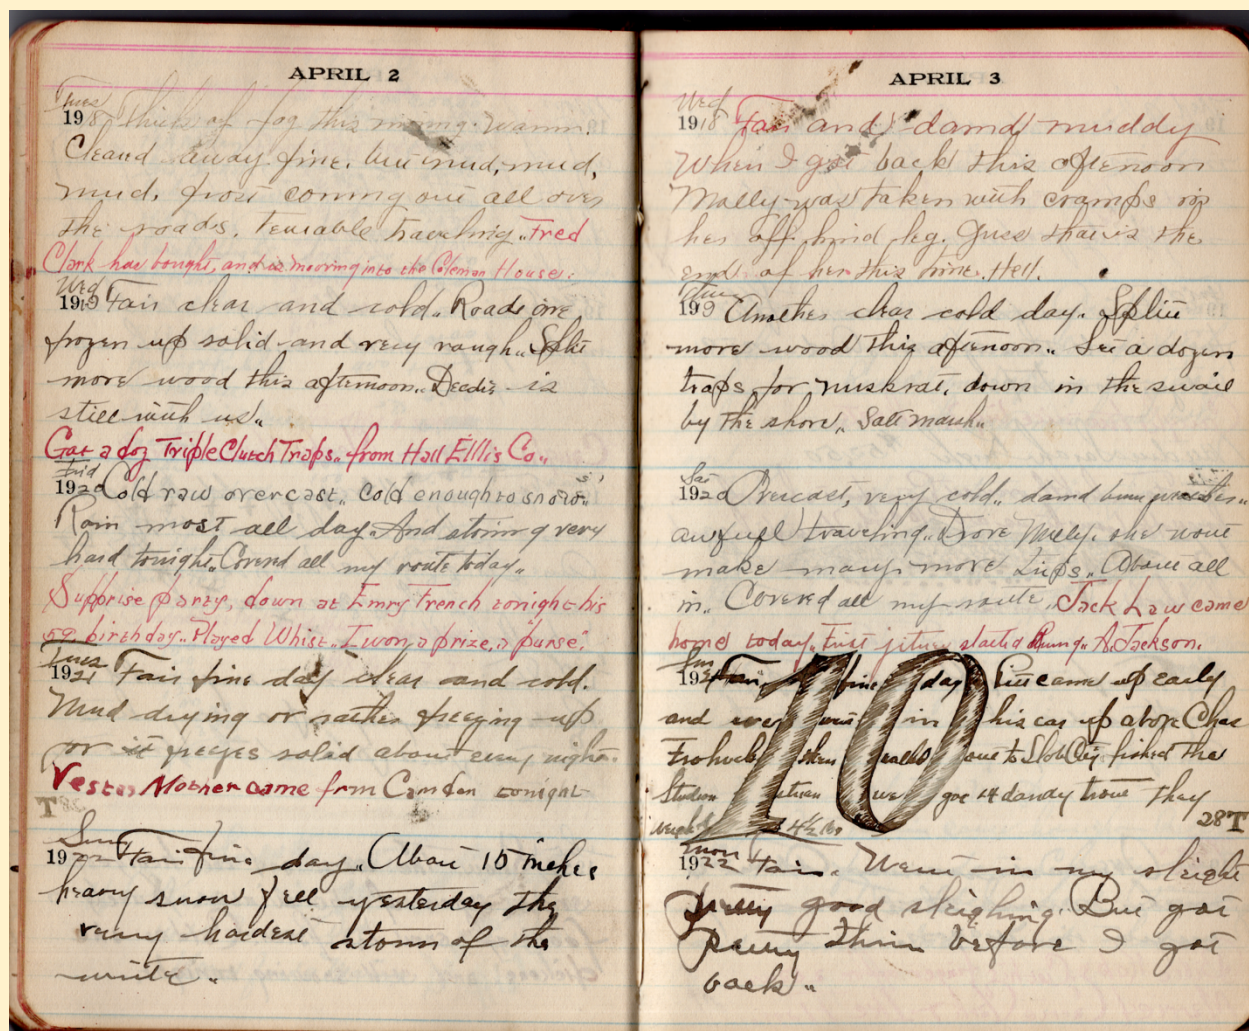 APRIL 2
Tues
1918 Thick of fog this morning. Warm.
Cleard away fine. but mud, mud,
mud, frost coming out all over
the roads. terrable traveling.. Fred
Clark has bought, and is mooving into the Coleman House.
Wed
1919 Fair clear and cold.. Roads are
frozen up solid and very rough.. Split
more wood this afternoon.. Deedie is
still with us..
Got a doz Triple Clutch Traps.. from Hall Ellis Co..
Frid
1920 Cold raw overcast.. Cold enough to snow..
Rain most all day. And storing very
hard tonight.. Coverd all my route today..
Supprise party, down at Emry French tonight his
59 birthday.. Played Whist.. I won a prize, a "purse".
1921 Fair fine day clear and cold.
Mud drying or rather freezing up
or it freezes solid about every night.
Vestas Mother came frm Camden tonight
T
Sun
1922 Fair fine day.. About 15 inches
heavy snow fell yesterday the
very hardest storm of the
winter..
APRIL 3
Wed
1918 Fair and damd muddy
When I got back this afternoon
Molly was taken with cramps in
her off hind leg. Guess that is the
end of her this time. Hell.
1919 Another clear cold day.. Split
more wood this afternoon.. Set a dozen
traps for muskrat, down in the swail
by the shore.. Salt marsh..
Sat
1920 Overcast, very cold.. damd
awfull traveling.. Drove Molly. she wont
make many more trips.. About all
in.. Covered all my route. Jack Law came
home today. First jitney started A. Jackson.
Sun
1921 Fair, fine day came up early
and went in his car up above Chas
then walked fished the
we got 14 dandy trout they
weighed 4½ lbs
28T
10
Mon
1922 Fair. Went in my sleigh
pretty good sleighing. But got
pretty thin before I got
back..